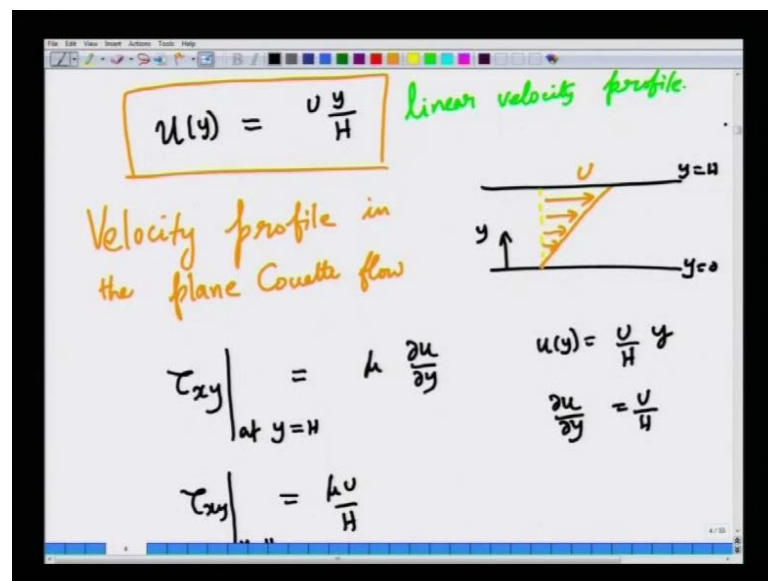 File Edit View Insert Actions Tools Help
u(y) = U y/H
linear velocity profile.
Velocity profile in
the plane Couette flow
U
y=H
y
y=0
τxy| at y=H = μ ∂u/∂y
u(y) = U/H y
∂u/∂y = U/H
τxy| = μU/H
4
4/33